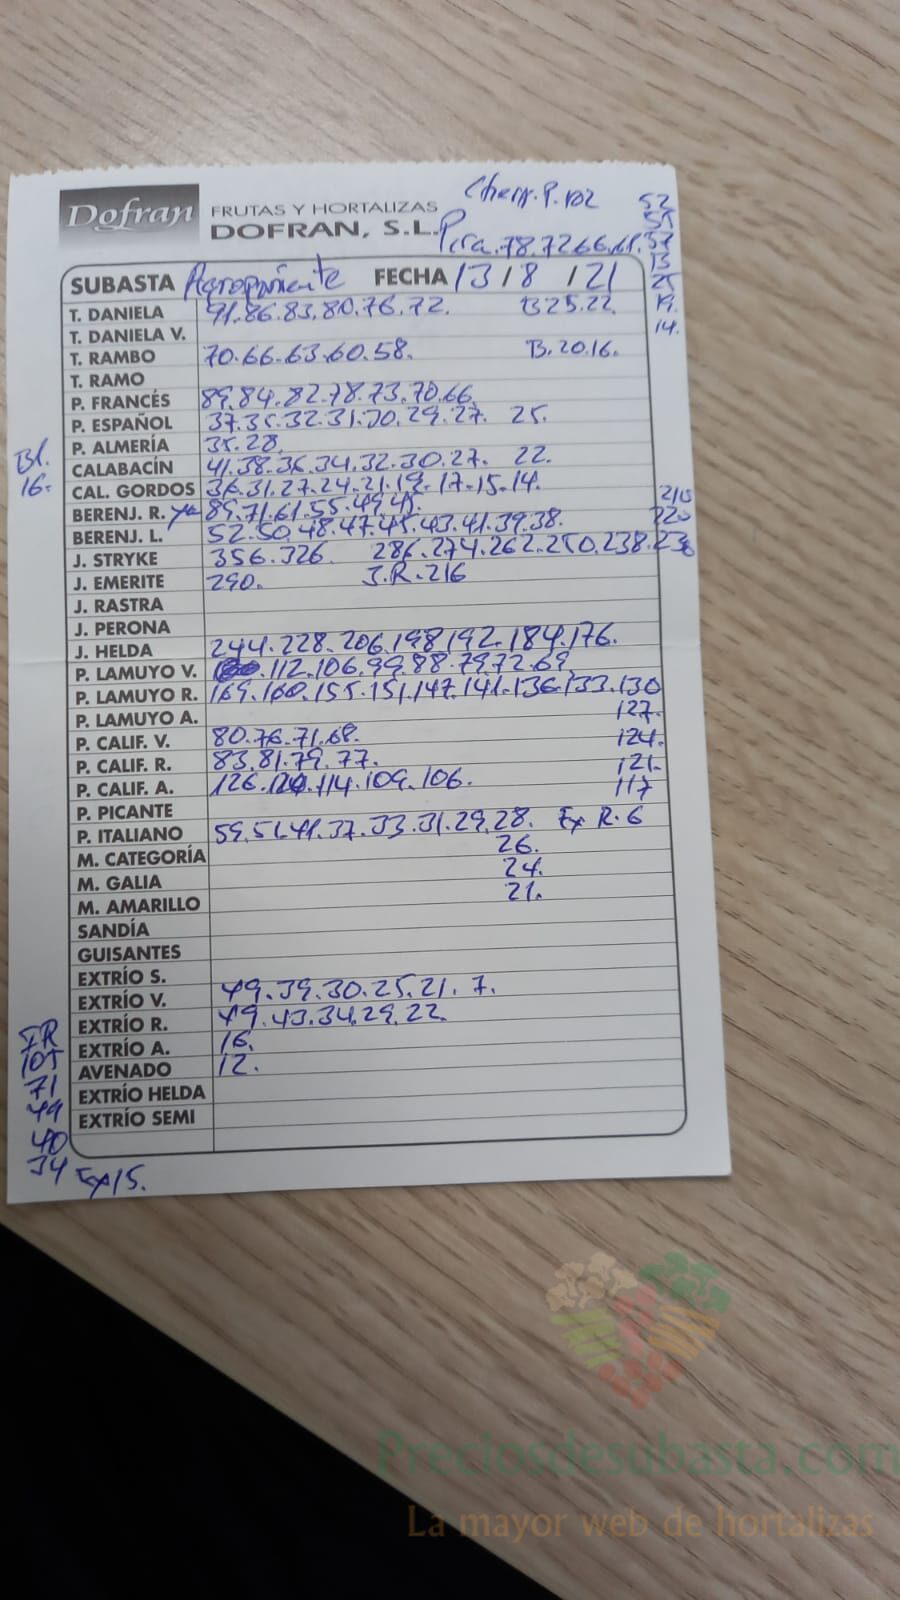 Cherr. P. 102
52
Dofran FRUTAS Y HORTALIZAS
DOFRAN, S.L.
55
Pera. 78.72.66.61.57
13
SUBASTA Agroponiente FECHA 13/8/21
25
T. DANIELA 91.86.83.80.76.72. B 25.22.
19.
T. DANIELA V.
14.
T. RAMBO 70.66.63.60.58. B.20.16.
T. RAMO
P. FRANCÉS 89.84.82.78.73.70.66.
P. ESPAÑOL 37.35.32.31.30.29.27. 25.
P. ALMERÍA 35.28.
Bl.
16.
CALABACÍN 41.38.36.34.32.30.27. 22.
CAL. GORDOS 36.31.27.24.21.19.17.15.14.
BERENJ. R. 89.71.61.55.49.45.
210
220
BERENJ. L. 52.50.48.47.45.43.41.39.38.
J. STRYKE 356.326. 286.274.262.250.238.230
J. EMERITE 290. J.R.216
J. RASTRA
J. PERONA
J. HELDA 244.228.206.198.192.184.176.
P. LAMUYO V. 112.106.99.88.79.72.69
P. LAMUYO R. 169.160.155.151.147.141.136.133.130
P. LAMUYO A. 127.
P. CALIF. V. 80.76.71.68. 124.
P. CALIF. R. 83.81.79.77. 121.
P. CALIF. A. 126.120.114.109.106. 117
P. PICANTE
P. ITALIANO 59.51.41.37.33.31.29.28. Ex R. 6
M. CATEGORÍA 26.
M. GALIA 24.
M. AMARILLO 21.
SANDÍA
GUISANTES
EXTRÍO S.
EXTRÍO V. 49.39.30.25.21.7.
EXTRÍO R. 49.43.34.29.22.
EXTRÍO A. 16.
AVENADO 12.
EXTRÍO HELDA
EXTRÍO SEMI
IR
105
71
49
40
34 Ex 15.
Preciosdesubasta.com
La mayor web de hortalizas